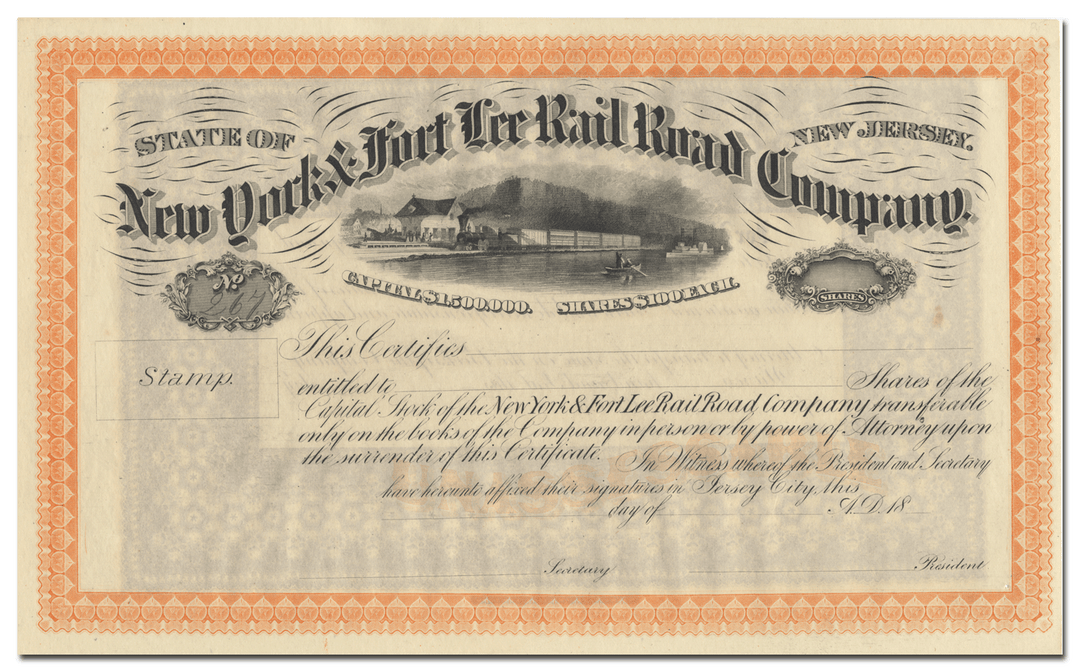 STATE OF
NEW JERSEY.
New York & Fort Lee Rail Road Company.
CAPITAL $1500,000. SHARES $100 EACH.
No
267
SHARES
Stamp.
This Certifies
entitled to Shares of the
Capital Stock of the New York & Fort Lee Rail Road Company transferable
only on the books of the Company in person or by power of Attorney upon
the surrender of this Certificate. In Witness whereof the President and Secretary
have hereunto affixed their signatures in Jersey City, this
day of A.D. 18
Secretary
President